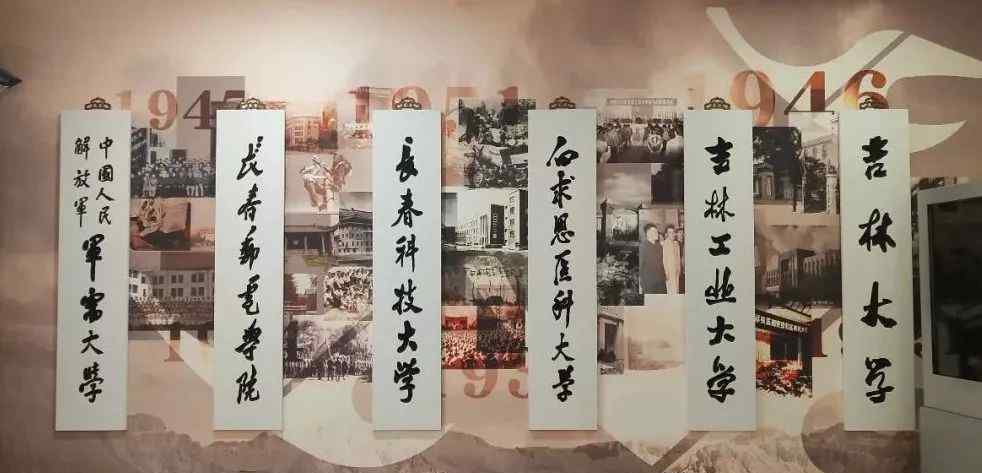 1946
1951
吉林大学
吉林工业大学
白求恩医科大学
長春科技大學
長春郵電學院
中國人民
解放軍
軍需大學